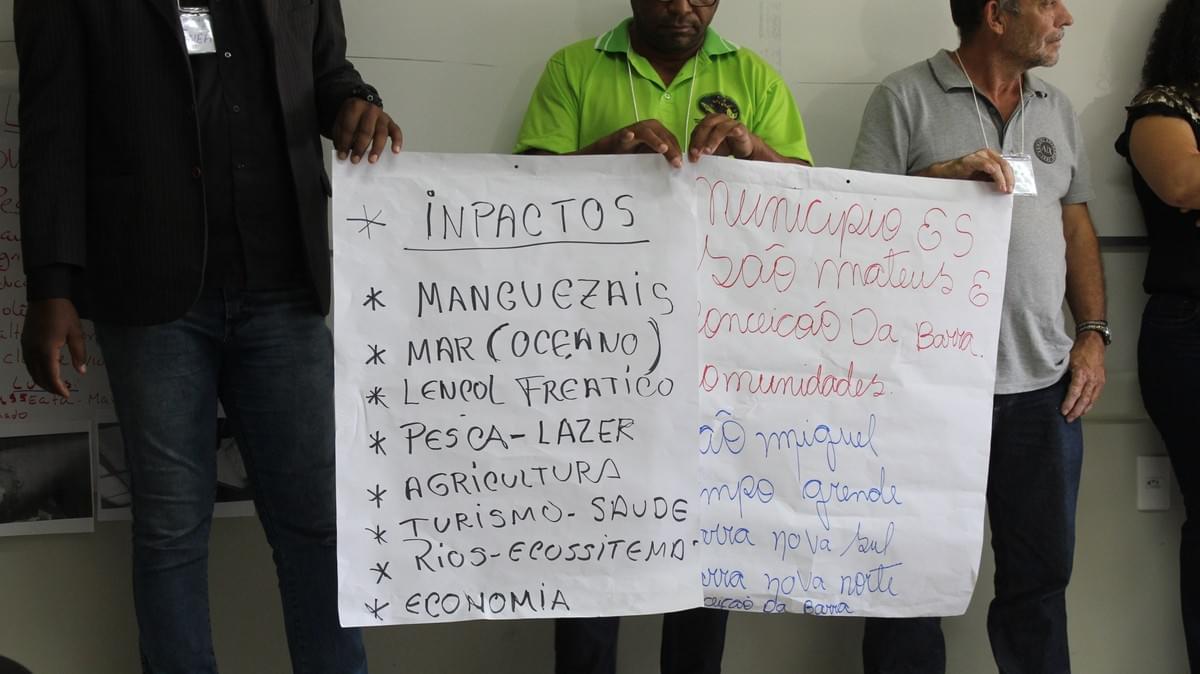 * INPACTOS
* MANGUEZAIS
* MAR (OCEANO)
* LENCOL FREATICO
* PESCA-LAZER
* AGRICULTURA
* TURISMO-SAUDE
* RIOS-ECOSSITEMA
* ECONOMIA
Município ES
São mateus E
onceição Da Barra.
omunidades.
ÃO miguel
mpo grende
rra nova sul
rra nova norte
ceição Da Barra